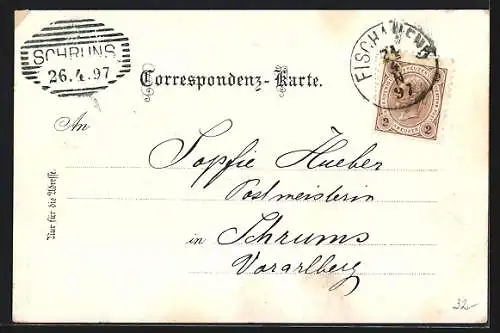 SCHRUNS
26.4.97
FISCHAMEND
24
4
97
2 KREUZER 2
Correspondenz-Karte.
An
Sopfie Hueber
Postmeisterin
in Schruns
Vorarlberg
Nur für die Adresse.
32-